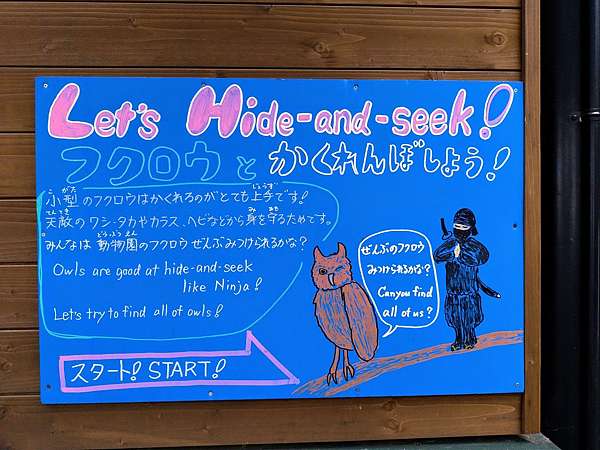 Let's Hide-and-seek!
フクロウとかくれんぼしよう!
小型のフクロウはかくれるのがとても上手です!
天敵のワシ・タカやカラス、ヘビなどから身を守るためです。
みんなは動物園のフクロウぜんぶみつけられるかな?
Owls are good at hide-and-seek
like Ninja!
Let's try to find all of owls!
ぜんぶのフクロウ
みつけられるかな?
Can you find
all of us?
スタート! START!